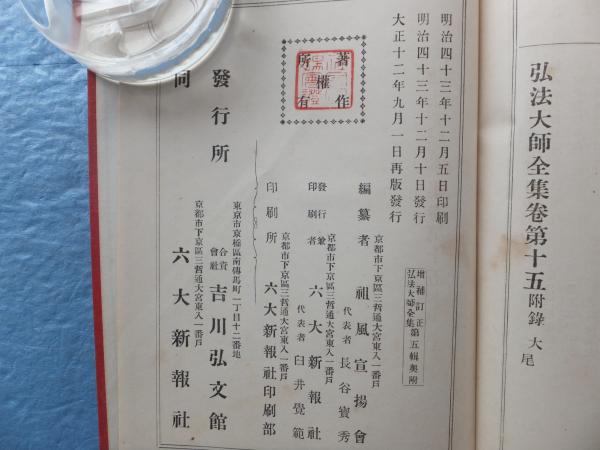 弘法大師全集卷第十五附錄 大尾
明治四十三年十二月五日印刷
明治四十三年十二月十日發行
大正十二年九月一日再版發行
著作
權
所有
增補訂正
弘法大師全集第五輯奧附
編纂者
京都市下京區三哲通大宮東入一番戶
祖風宣揚會
代表者 長谷寶秀
發行兼
印刷者
京都市下京區三哲通大宮東入一番戶
六大新報社
代表者 臼井覺範
印刷所
京都市下京區三哲通大宮東入一番戶
六大新報社印刷部
發行所
東京市京橋區南傳馬町一丁目十二番地
合資
會社
吉川弘文館
同
京都市下京區三哲通大宮東入一番戶
六大新報社